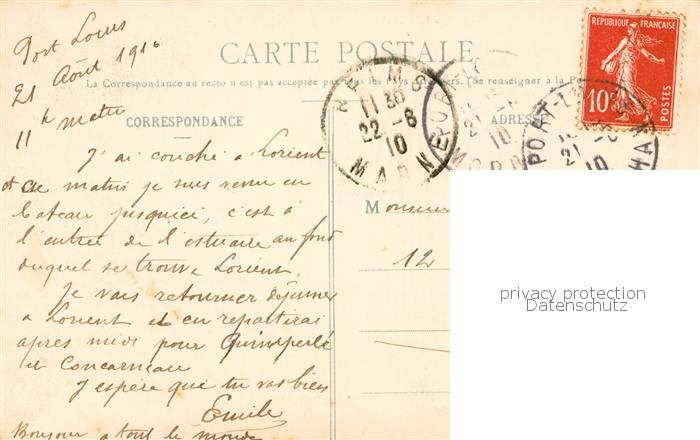 Port Louis
21 Août 1910
11h matin
CARTE POSTALE
La Correspondance au recto n'est pas acceptée par tous les pays (Se renseigner à la Po
CORRESPONDANCE
ADRESSE
REPUBLIQUE FRANÇAISE
10c
POSTES
REIMS
11 30
22 -8
10
MARNE
PORT-L
21 -8
10
MORB
HAN
J'ai couché à Lorient
et ce matin je suis venu en
bateau jusqu'ici, c'est à
l'entrée de l'estuaire au fond
duquel se trouve Lorient.
Je vais retourner déjeuner
à Lorient et en repartirai
après midi pour Quimperlé
et Concarneau
J'espère que tu vas bien
Emile
Bonjour a tout le monde
Monsieur
12
privacy protection
Datenschutz